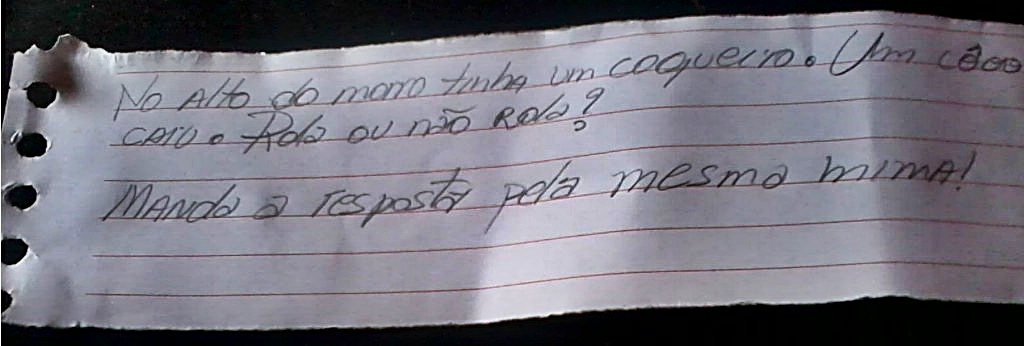 No Alto do morro tinha um coqueiro. Um côco
caiu. Rola ou não Rola?
MANda a resposta pela mesma mimA!